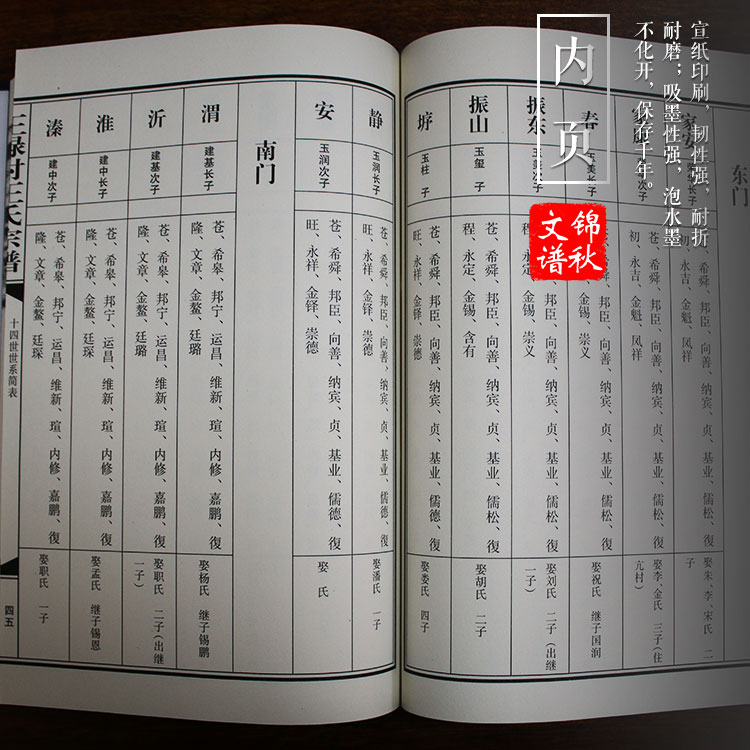 宣纸印刷，韧性强，耐折
耐磨；吸墨性强，泡水墨
不化开，保存千年。
内页
锦秋
文谱
东门
春
玉美长子
初、金魁、凤祥
苍、希舜、邦臣、向善、纳宾、贞、基业、儒松、復
初、永吉、金魁、凤祥
娶朱、李、宋氏 二
子
娶李、金氏 三子（住
亢村）
程、永定、金锡、崇义
娶祝氏 继子国润
振东
玉美次子
苍、希舜、邦臣、向善、纳宾、贞、基业、儒松、復
程、永定、金锡、崇义
娶刘氏 二子（出继
一子）
振山
玉玺 子
苍、希舜、邦臣、向善、纳宾、贞、基业、儒松、復
程、永定、金锡、含有
娶胡氏 二子
垿
玉柱 子
苍、希舜、邦臣、向善、纳宾、贞、基业、儒德、復
旺、永祥、金铎、崇德
娶娄氏 四子
静
玉润长子
苍、希舜、邦臣、向善、纳宾、贞、基业、儒德、復
旺、永祥、金铎、崇德
娶潘氏 一子
安
玉润次子
苍、希舜、邦臣、向善、纳宾、贞、基业、儒德、復
旺、永祥、金铎、崇德
娶 氏
南门
渭
建基长子
苍、希皋、邦宁、运昌、维新、瑄、内修、嘉鹏、復
隆、文章、金鳌、廷璐
娶杨氏 继子锡鹏
沂
建基次子
苍、希皋、邦宁、运昌、维新、瑄、内修、嘉鹏、復
隆、文章、金鳌、廷璐
娶职氏 二子（出继
一子）
淮
建中长子
苍、希皋、邦宁、运昌、维新、瑄、内修、嘉鹏、復
隆、文章、金鳌、廷琛
娶孟氏 继子锡恩
溱
建中次子
苍、希皋、邦宁、运昌、维新、瑄、内修、嘉鹏、復
隆、文章、金鳌、廷琛
娶职氏 一子
王禄村王氏宗谱
十四世世系简表
四五